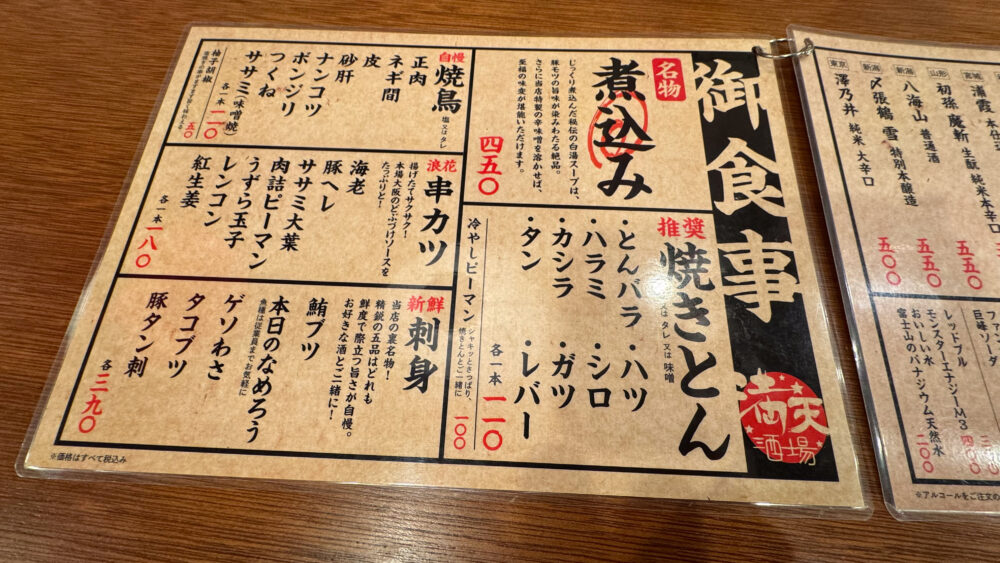 御食事
満天
酒場
名物
煮込み
じっくり煮込んだ秘伝の白湯スープは、
豚モツの旨味が染みわたる絶品。
さらに当店特製の辛味噌を溶かせば、
至福の味変が堪能いただけます。
四五〇
推奨
焼きとん
又は タレ 又は 味噌
・とんバラ
・ハツ
・ハラミ
・シロ
・カシラ
・ガツ
・タン
・レバー
各一本 一一〇
冷やしピーマン
シャキッとさっぱり、
焼きとんとご一緒に
一〇〇
自慢
焼鳥
塩又はタレ
正肉
ネギ間
皮
砂肝
ナンコツ
ボンジリ
つくね
ササミ(味噌焼)
各一本 一一〇
柚子胡椒
五〇
浪花
串カツ
揚げたてサクサク！
本場大阪のどぶづけソースを
たっぷりと！
海老
豚ヘレ
ササミ大葉
肉詰ピーマン
うずら玉子
レンコン
紅生姜
各一本 一八〇
新鮮
刺身
当店の裏名物！
精鋭の五品はどれも
鮮度で際立つ旨さが自慢。
お好きな酒とご一緒に！
鮪ブツ
本日のなめろう
魚種は従業員までお気軽に
ゲソわさ
タコブツ
豚タン刺
各 三九〇
※価格はすべて税込み
宮城
浦霞
山形
初孫 魔斬 生酛 純米本辛口
五五〇
新潟
八海山 普通酒
五五〇
新潟
〆張鶴 雪 特別本醸造
五〇〇
東京
澤乃井 純米 大辛口
レッドブル
モンスターエナジーM3
おいしい水
富士山のバナジウム天然水
二〇〇
※アルコールをご注文の